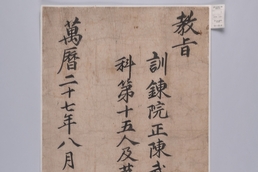 教旨
訓鍊院正陳武
科第十五人及第
萬曆二十七年八月